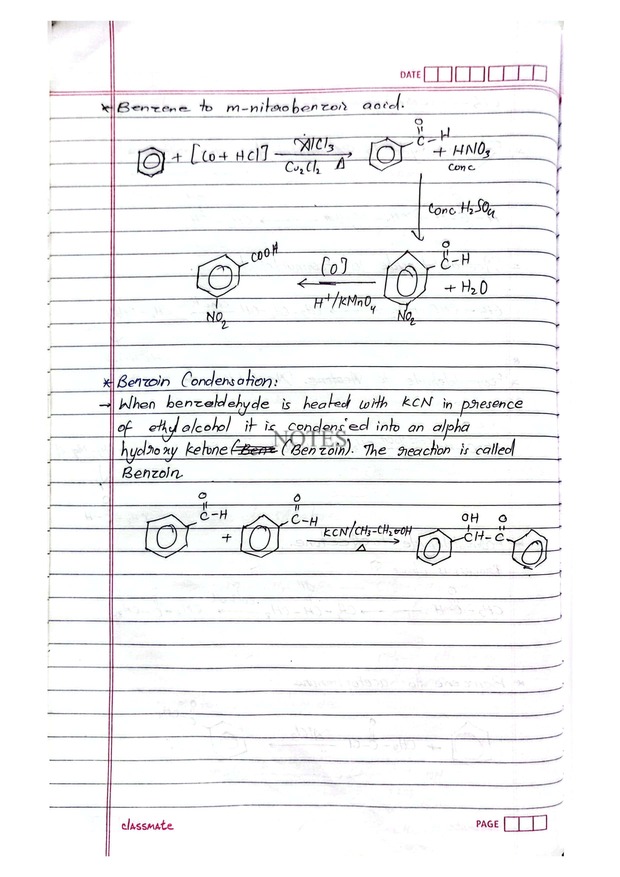 DATE
* Benzene to m-nitrobenzoic acid.
+ [CO + HCl] AlCl3 Cu2Cl2 Δ O C-H + HNO3 conc
Conc H2SO4
COOH NO2 [O] H+/KMnO4 O C-H NO2 + H2O
* Benzoin Condensation:
→ When benzaldehyde is heated with KCN in presence
of ethyl alcohol it is condensed into an alpha
hydroxy ketone (Benzoin). The reaction is called
Benzoin
NOTES
O C-H + O C-H KCN/CH3-CH2-OH Δ OH CH-C O
classmate
PAGE